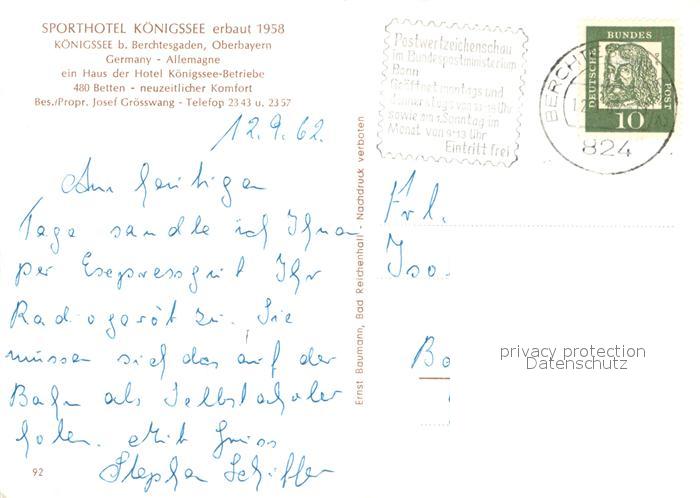 SPORTHOTEL KÖNIGSSEE erbaut 1958
KÖNIGSSEE b. Berchtesgaden, Oberbayern
Germany - Allemagne
ein Haus der Hotel Königssee-Betriebe
480 Betten - neuzeitlicher Komfort
Bes./Propr. Josef Grösswang - Telefon 23 43 u. 23 57
12.9.62.
Am heutigen
Tage sandte ich Ihnen
per Expressgut Ihr
Radiogerät zu. Sie
müssen sich das auf der
Bahn als Selbstabholer
holen. Mit Gruss
Stephan Schiffer
92
Ernst Baumann, Bad Reichenhall - Nachdruck verboten
Postwertzeichenschau
im Bundespostministerium
Bonn
Geöffnet montags und
donnerstags von 10-16 Uhr
sowie am 1. Sonntag im
Monat von 9-13 Uhr
Eintritt frei
BERCHT
824
DEUTSCHE BUNDES POST
10
Frl.
Iso.
Bo
privacy protection
Datenschutz